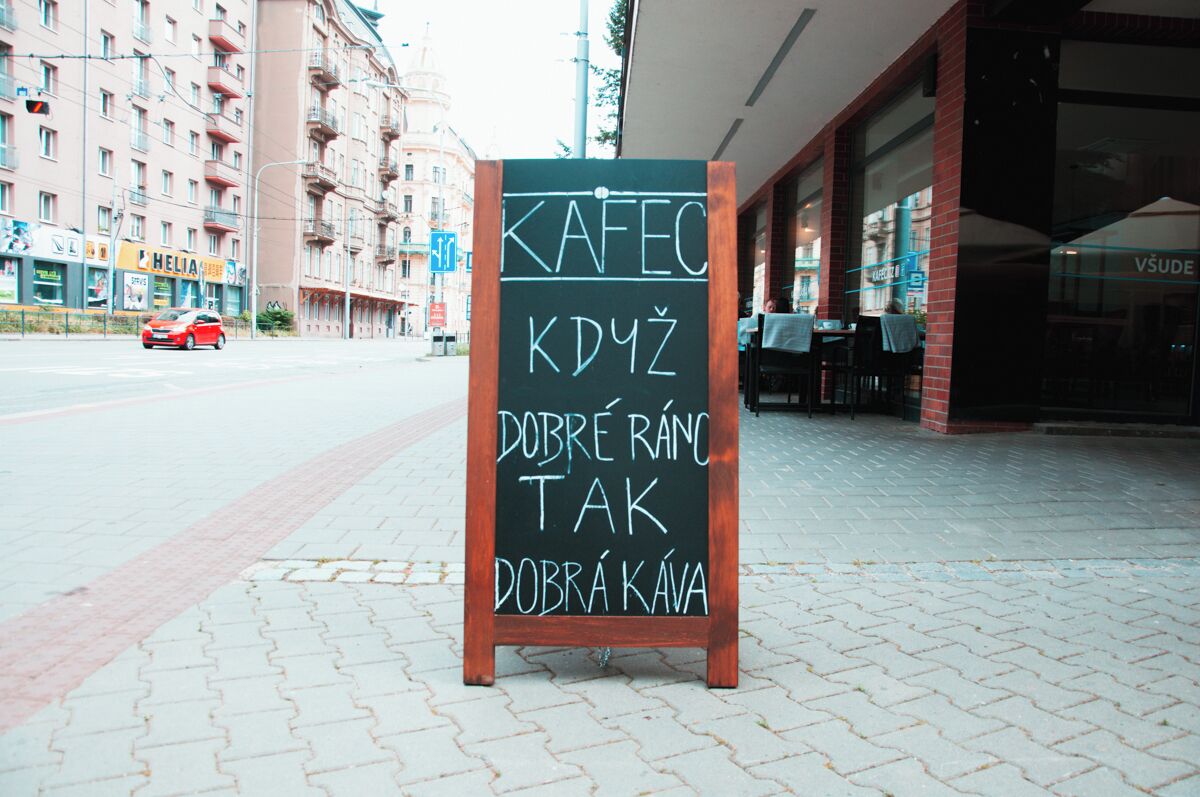 KAFEC
KDYŽ
DOBRÉ RÁNO
TAK
DOBRÁ KÁVA
HELIA
VŠUDE